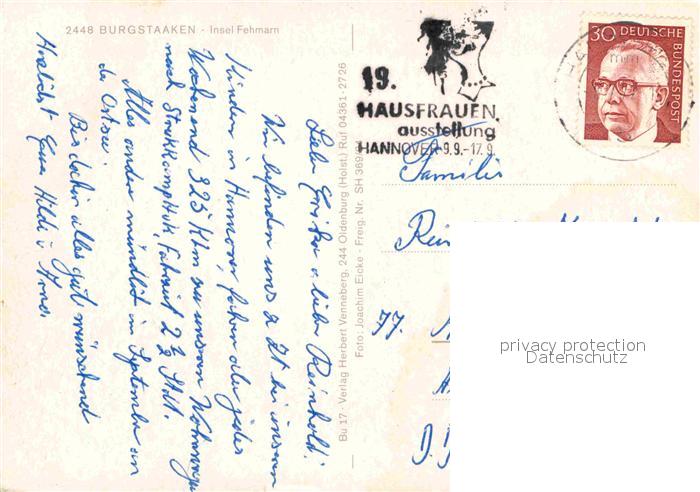 2448 BURGSTAAKEN - Insel Fehmarn
Liebe Erika u. lieber Reinhold!
Wir befinden uns z. Zt. bei unseren
Kindern in Hannover, fahren aber jedes
Wochenend 325 Klm zu unserem Wohnwagen
nach Strukkamphuk Fahrzeit 2½ Std.
Alles andere mündlich im September an
der Ostsee.
Bis dahin alles gute wünschend
Herzlichst Eure Hilde u.
Bu 17 · Verlag Herbert Venneberg, 244 Oldenburg (Holst.) Ruf 04361-2726
Foto: Joachim Eicke - Freig. Nr. SH 369
19.
HAUSFRAUEN
ausstellung
HANNOVER 9.9.-17.9.
30 DEUTSCHE
BUNDESPOST
Familie
77.
privacy protection
Datenschutz